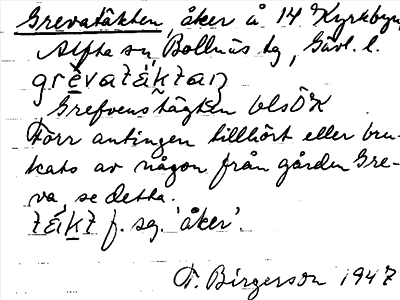 Grevatäkten, åker å 14 Kyrkbyn,
Alfta sn, Bollnäs tg, Gävl. l.
grèvatäktan
Grefvenstägten OlsÖK
Förr antingen tillhört eller bru-
kats av någon från gården Gre-
va, se detta.
täkt f. sg. 'åker'.
F. Birgerson 1947